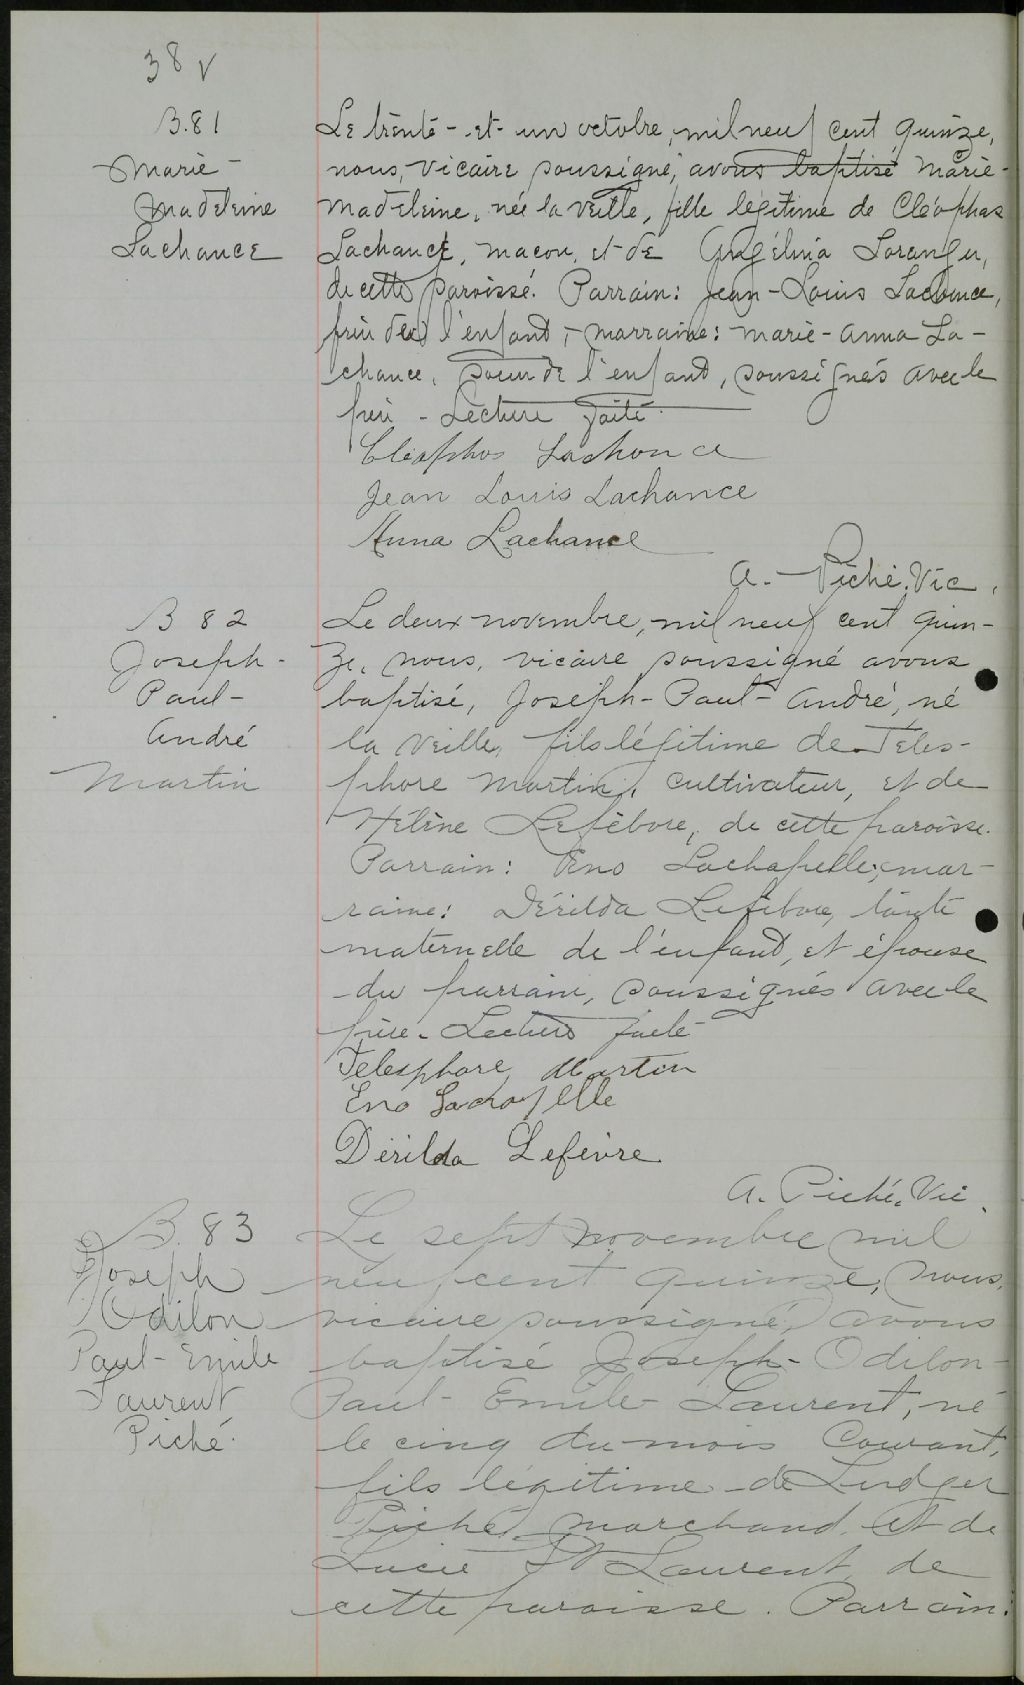 38 v
B.81
Marie-
Madeleine
Lachance
Le trente-et-un octobre, mil neuf cent quinze,
nous, vicaire soussigné, avons baptisé Marie-
Madeleine, née la veille, fille légitime de Cléophas
Lachance, maçon, et de Angélina Loranger,
de cette paroisse. Parrain: Jean-Louis Lachance,
frère de l'enfant, - marraine: Marie-Anna La-
chance, soeur de l'enfant, soussignés avec le
père - Lecture faite.
Cléophas Lachance
Jean Louis Lachance
Anna Lachance
A. Piché, Vic.
B 82
Joseph-
Paul-
André
Martin
Le deux novembre, mil neuf cent quin-
ze, nous, vicaire soussigné avons
baptisé, Joseph-Paul-André, né
la veille, fils légitime de Téles-
phore Martin, cultivateur, et de
Hélène Lefebvre, de cette paroisse.
Parrain: Eno Lachapelle; mar-
raine: Dérilda Lefebvre, tante
maternelle de l'enfant, et épouse
du parrain, soussignés avec le
père. Lecture faite
Telesphore Martin
Eno Lachapelle
Dérilda Lefeivre
A. Piché, Vic.
B. 83
Joseph
Odilon
Paul-Emile
Laurent
Piché.
Le sept novembre mil
neuf cent quinze, nous,
vicaire soussigné, avons
baptisé Joseph-Odilon-
Paul-Emile-Laurent, né
le cinq du mois courant,
fils légitime de Ludger
Piché, marchand, et de
Lucie St Laurent, de
cette paroisse. Parrain: